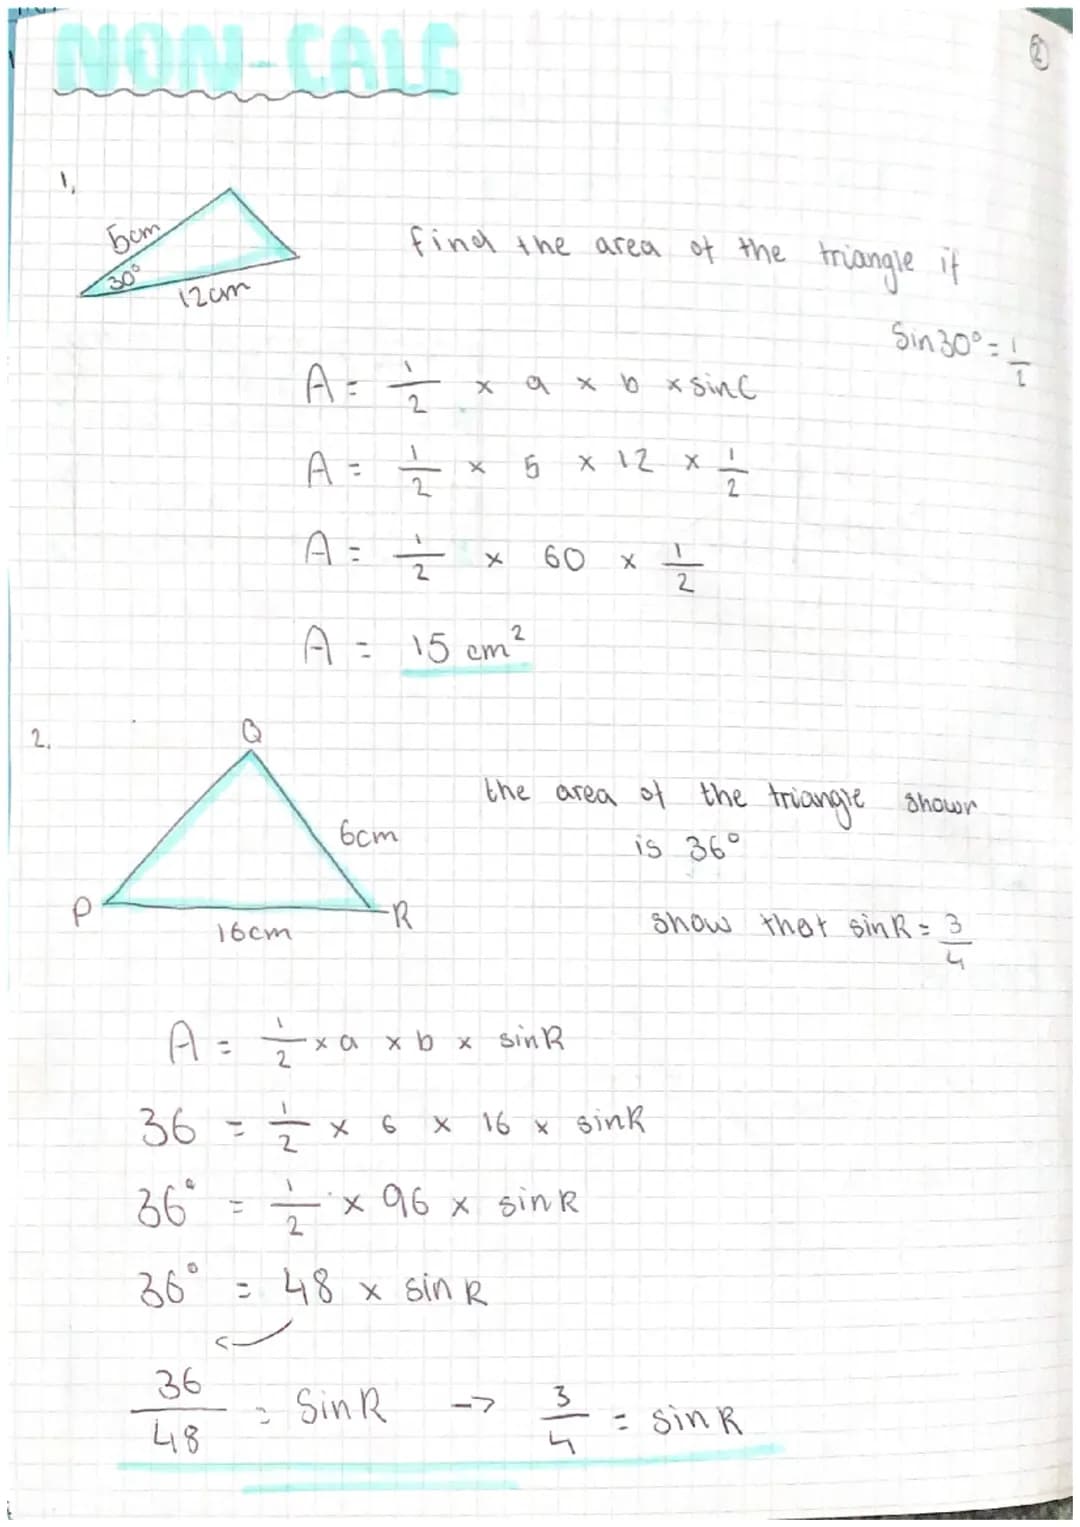 NON-CALC
2
1.
5cm
30°
12cm
find the area of the triangle if
Sin30° = 1/2
A = 1/2 × a × b × sinC
A = 1/2 × 5 × 12 × 1/2
A = 1/2 × 60 × 1/2
A = 15 cm²
2.
Q
6cm
P
R
16cm
the area of the triangle shown
is 36°
show that sinR = 3/4
A = 1/2 × a × b × sinR
36 = 1/2 × 6 × 16 × sinR
36° = 1/2 × 96 × sinR
36° = 48 × sinR
36/48 = SinR → 3/4 = sinR